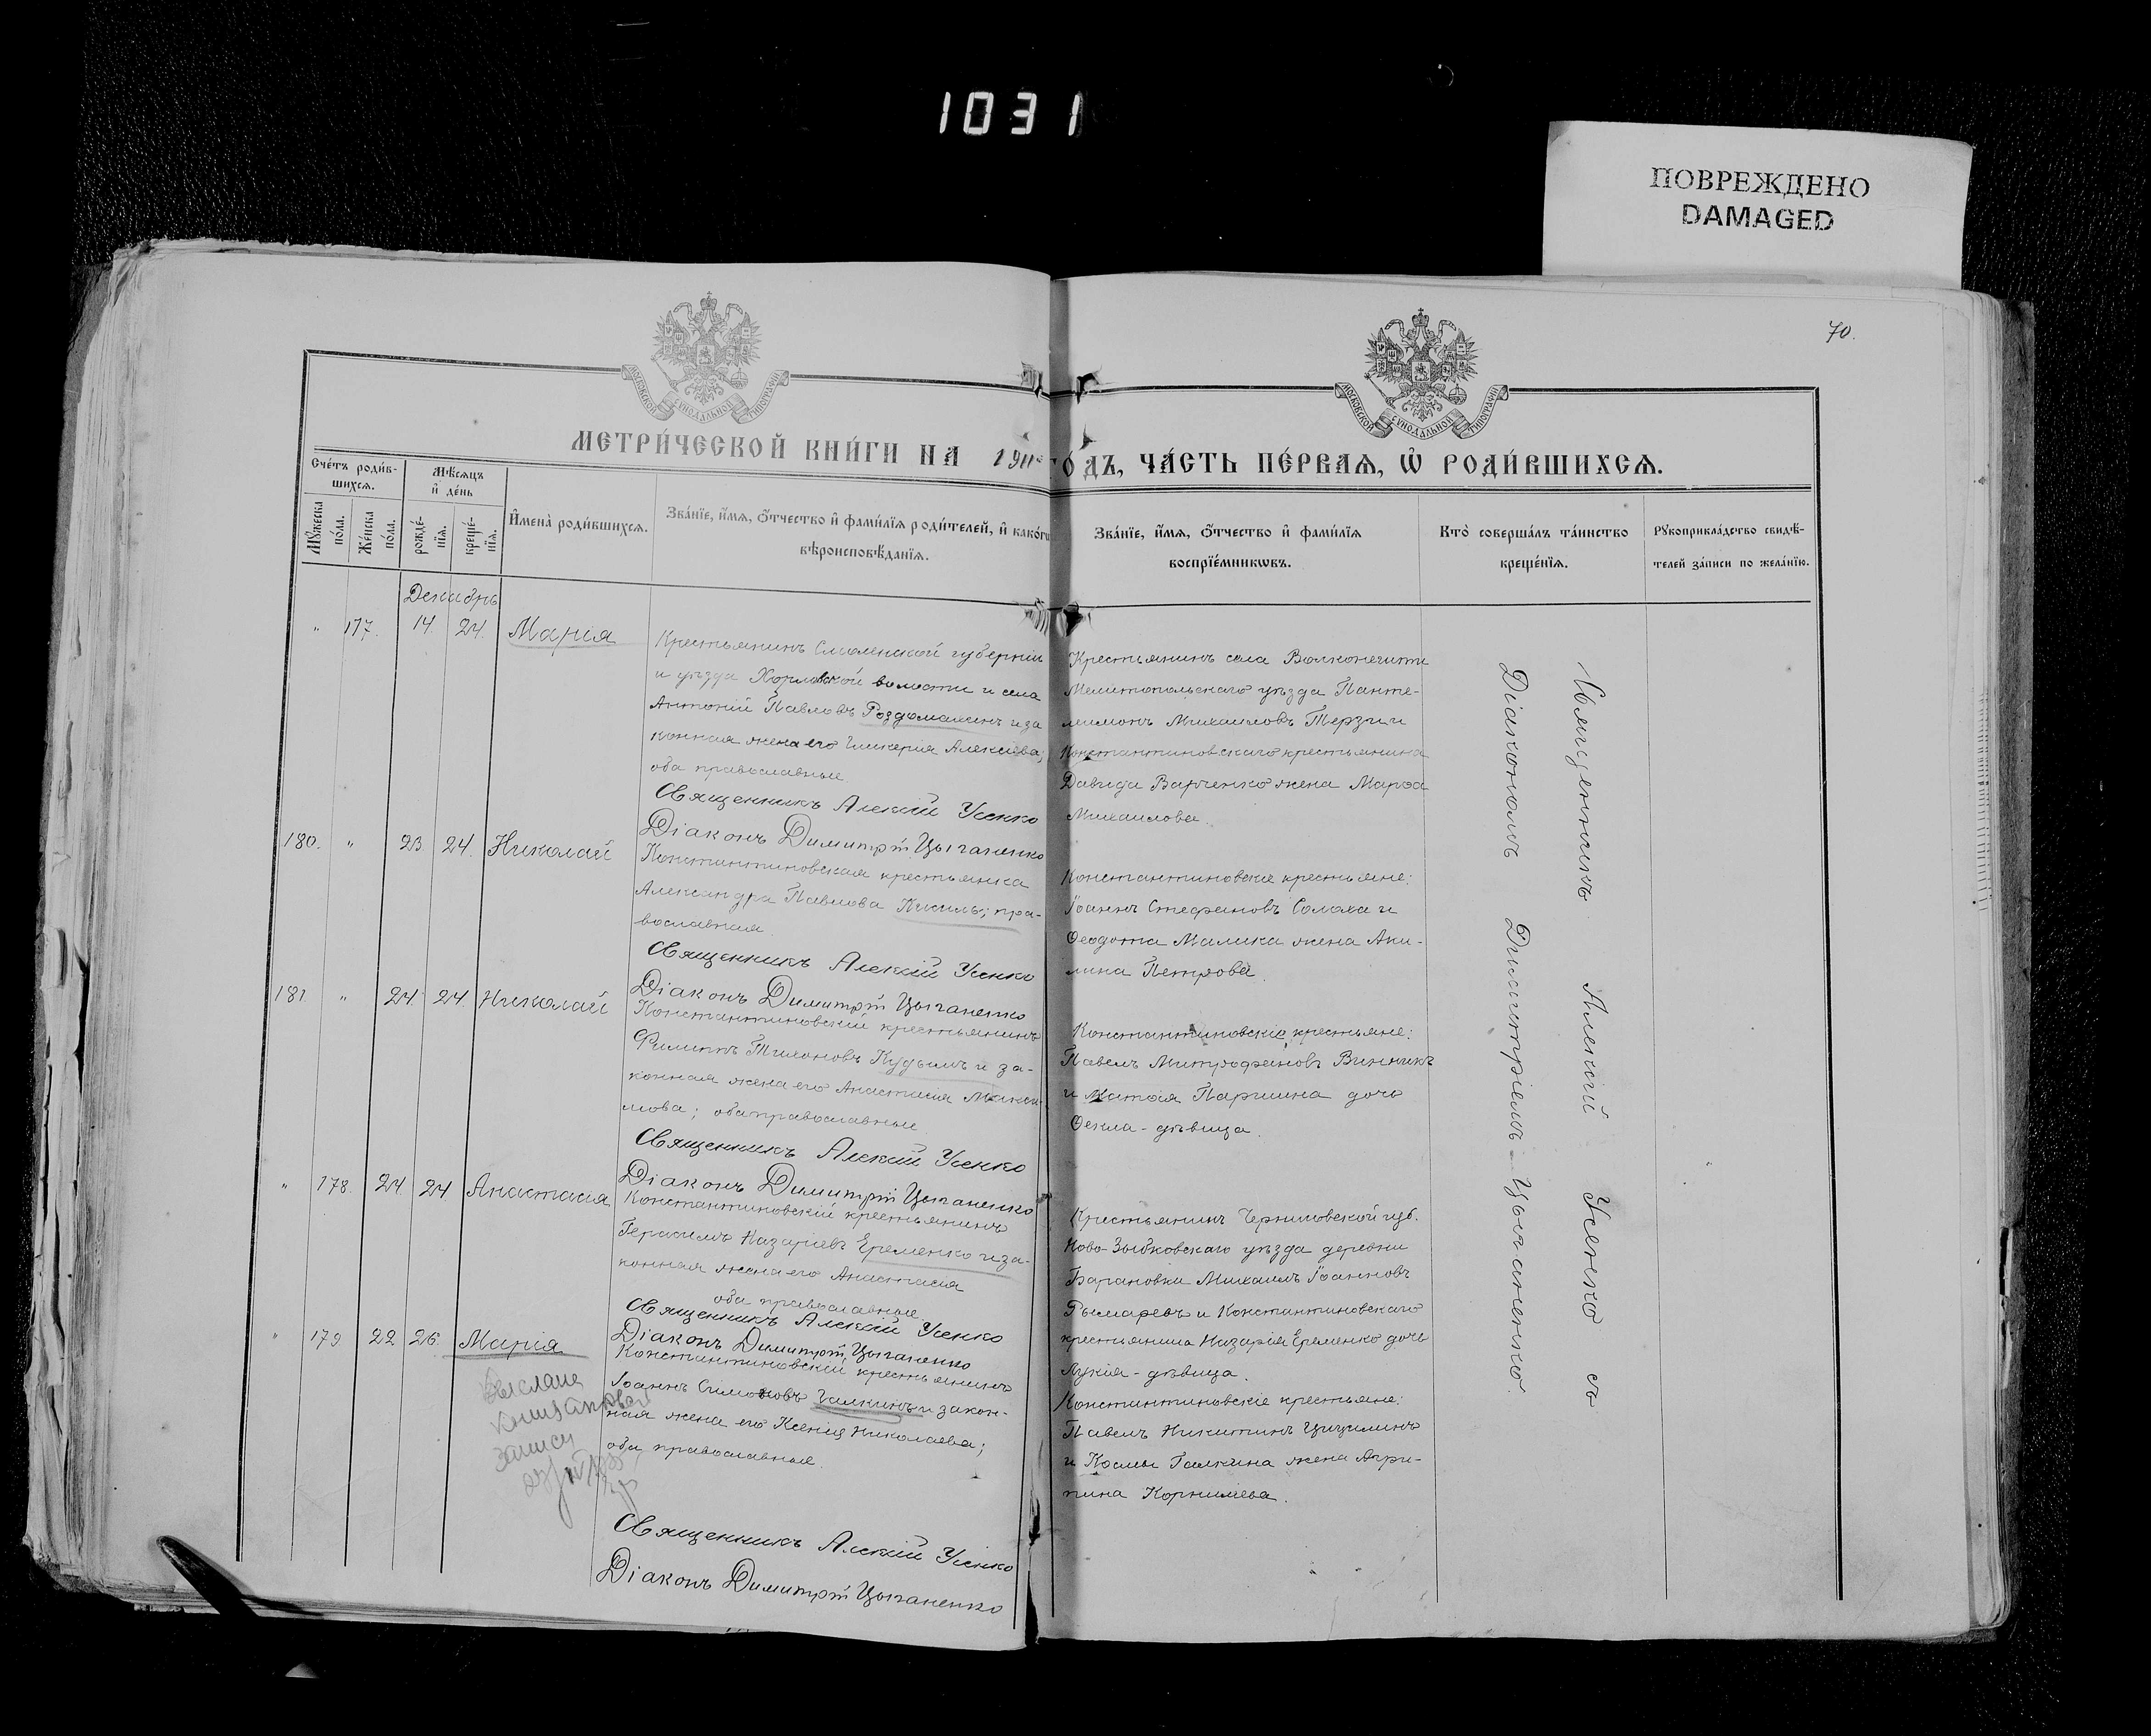 1031
ПОВРЕЖДЕНО
DAMAGED
70.
МОСКОВСКОЙ СУНОДАЛЬНОЙ ТИПОГРАФІИ
МОСКОВСКОЙ СУНОДАЛЬНОЙ ТИПОГРАФІИ
МЕТРИ́ЧЕСКОЙ КНИ́ГИ НА 1911 го́дъ, ЧА́СТЬ ПЕ́РВАѦ, Ѡ҆ РОДИ́ВШИХСѦ.
Сче́тъ роди́в-
шихсѧ.
Мꙋ́жеска
по́ла.
Же́нска
по́ла.
Мѣ́сѧцъ
и҆ де́нь
рожде́-
нїѧ.
креще́-
нїѧ.
И҆мена̀ роди́вшихсѧ.
Зва́нїе, и҆́мѧ, ѻ҆́тчество и҆ фами́лїѧ роди́телей, и҆ како́гѡ
вѣроисповѣ́данїѧ.
Зва́нїе, и҆́мѧ, ѻ҆́тчество и҆ фами́лїѧ
воспрїе́мникѡвъ.
Кто̀ соверша́лъ та́инство
креще́нїѧ.
Рꙋкоприкла́дство свидѣ́-
телей за́писи по жела́нїю.
Декабрь
" 177. 14. 24. Марія
Крестьянинъ Смоленской губерніи
и уѣзда Хорловской волости и села
Антоній Павловъ Роздомахинъ и за
конная жена его Гликерія Алексіева;
оба православные
Священникъ Алексій Усенко
Діаконъ Димитрій Цыганенко
Крестьянинъ села Волконешти
Мелитопольскаго уѣзда Панте-
леимонъ Михаиловъ Терзи и
Константиновскаго крестьянина
Давида Варченко жена Марѳа
Михаилова.
180. " 23. 24. Николай
Константиновская крестьянка
Александра Павлова Кисиль; пра-
вославная
Священникъ Алексій Усенко
Діаконъ Димитрій Цыганенко
Константиновскіе крестьяне:
Іоаннъ Стефановъ Солоха и
Ѳеодота Малика жена Аки-
лина Петрова.
181. " 24. 24. Николай
Константиновскій крестьянинъ
Филиппъ Тихоновъ Кудымъ и за-
конная жена его Анастасія Макси-
мова; оба православные
Священникъ Алексій Усенко
Діаконъ Димитрій Цыганенко
Константиновскіе крестьяне:
Павелъ Митрофановъ Винникъ
и Паршина дочь
Ѳекла - дѣвица.
" 178. 24. 24 Анастасія
Константиновскій крестьянинъ
Герасимъ Назаріевъ Еременко и за-
конная жена его Анастасія
оба православные
Священникъ Алексій Усенко
Діаконъ Димитрій Цыганенко
Крестьянинъ Черниговской губ.
Ново-Зыбковскаго уѣзда деревни
Барановки Михаилъ Іоанновъ
Рымаревъ и Константиновскаго
крестьянина Назарія Еременко дочь
Лукія - дѣвица.
" 179. 22 26. Марія
Константиновскій крестьянинъ
Іоаннъ Симоновъ Галкинъ и закон-
ная жена его Ксенія Николаева;
оба православные.
Священникъ Алексій Усенко
Діаконъ Димитрій Цыганенко
Константиновскіе крестьяне:
Павелъ Никитинъ
и Космы Галкина жена Агри-
пина Корнилиева.
выслана
записи
Священникъ Алексій Усенко съ
Діакономъ Димитріемъ Цыганенко.